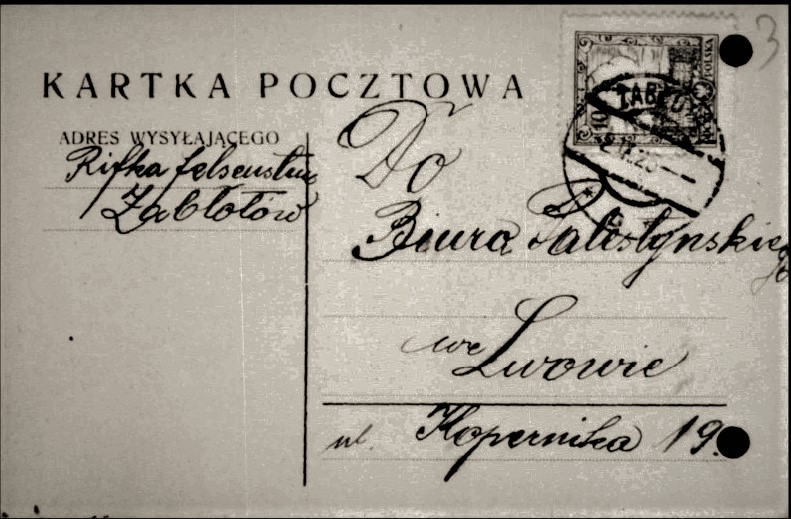 KARTKA POCZTOWA
3
10
POLSKA
ADRES WYSYŁAJĄCEGO
Rifka Felsenstein
Zabłotów
Do
Biura Palestyńskiego
we Lwowie
ul. Kopernika 19.